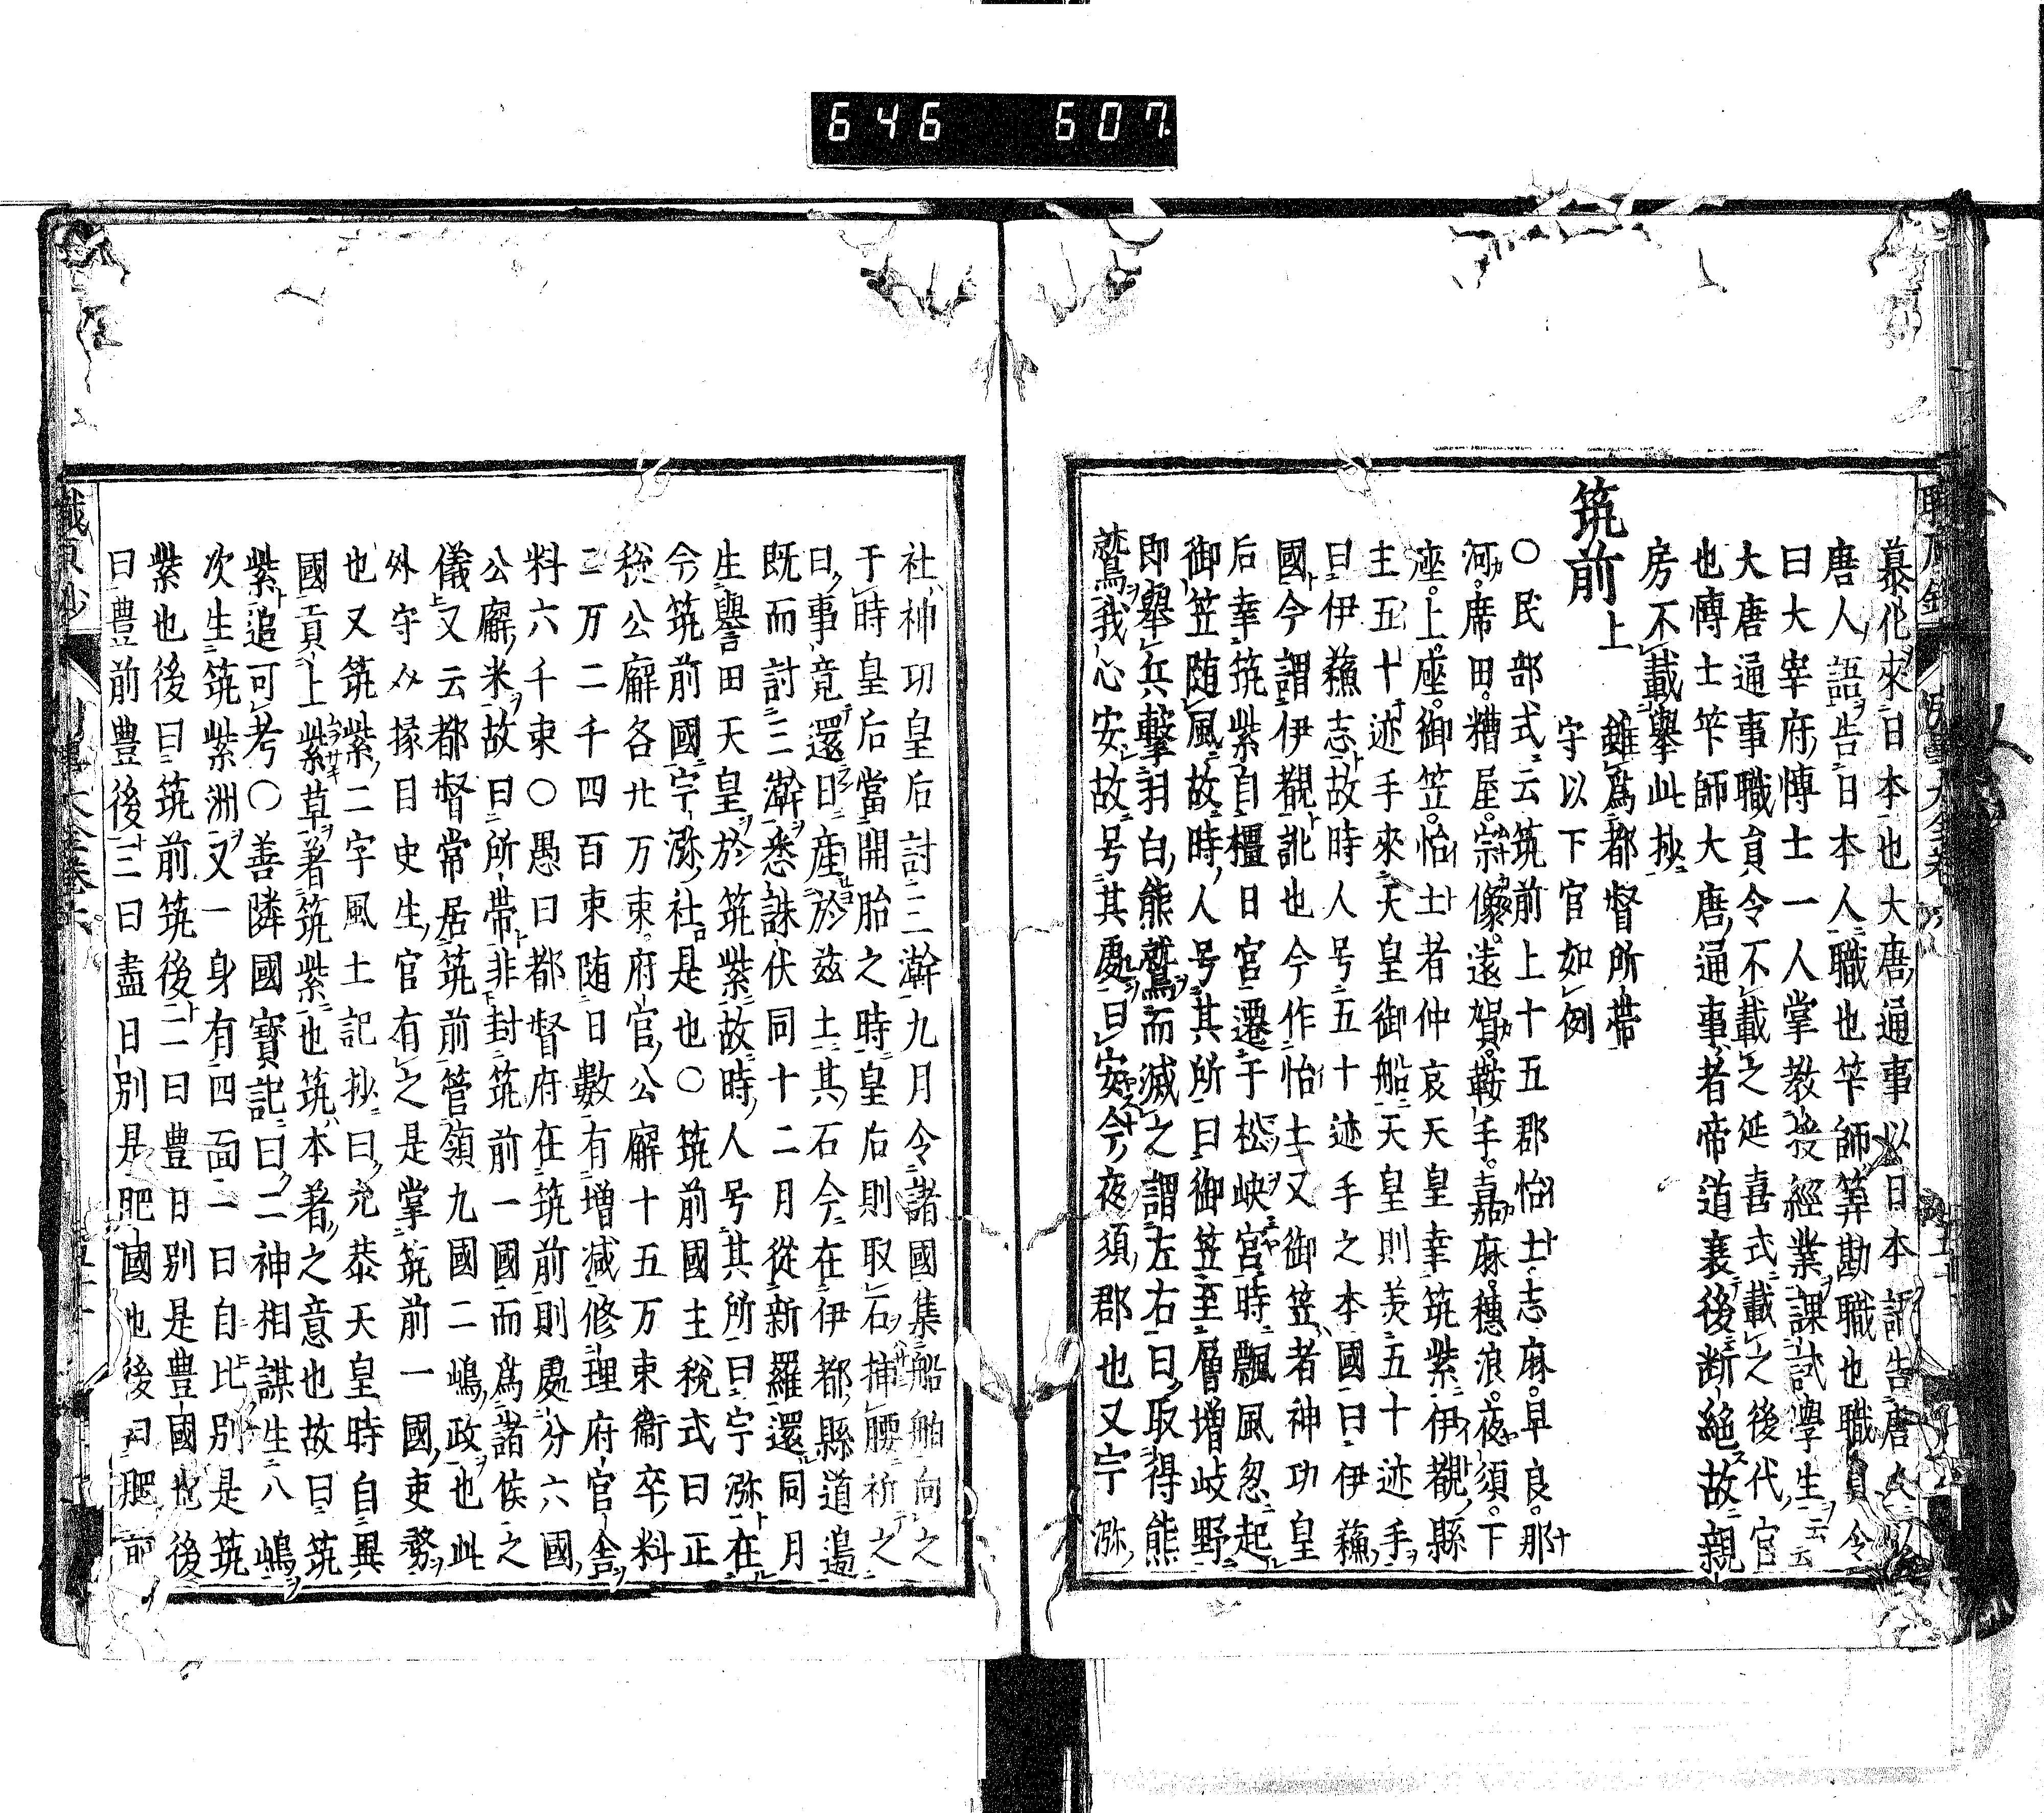 646 607.
慕化來日本也大唐通事以日本詞告唐人以
唐人語告日本人職也笇師算勘職也職員令
曰大宰府博士一人掌教授經業課試學生云云
大唐通事職員令不載之延喜式載之後代官
也博士笇師大唐通事者帝道衰後断絶故親
房不載擧此抄
筑前上 雖爲都督所帯
守以下官如例
○民部式云筑前上十五郡怡土志麻早良那
河席田糟屋宗像遠賀鞍手嘉麻穗浪夜須下
座上座御笠怡土者仲哀天皇幸筑紫伊覩縣
主五十迹手來天皇御船天皇則美五十迹手
曰伊蘓志故時人号五十迹手之本國曰伊蘓
國今謂伊覩訛也今作怡土又御笠者神功皇
后幸筑紫自橿日宮遷于松峽宮時飄風忽起
御笠随風故時人号其所曰御笠至層増岐野
即擧兵擊羽白熊鷲而滅之謂左右曰取得熊
鷲我心安故号其處曰安今夜須郡也又宁瀰
社神功皇后討三澣九月令諸國集船舶向之
于時皇后當開胎之時皇后則取石挿腰祈之
曰事竟還日產於兹土其石今在伊都縣道邉
既而討三澣悉誅伏同十二月從新羅還同月
生譽田天皇於筑紫故時人号其所曰宁瀰在
今筑前國宁瀰社是也○筑前國主稅式曰正
稅公廨各廿万束府官公廨十五万束衞卒料
二万二千四百束随日數有増减修理府官舍
料六千束○愚曰都督府在筑前則處分六國
公廨米故曰所帶非封筑前一國而爲諸侯之
儀又云都督常居筑前管領九國二嶋政也此
外守介掾目史生官有之是掌筑前一國吏務
也又筑紫二字風土記抄曰允恭天皇時自異
國貢上紫草著筑紫也筑本著之意也故曰筑
紫追可考○善隣國寳記曰二神相謀生八嶋
次生筑紫洲又一身有四面一曰自比別是筑
紫也後曰筑前筑後二曰豊日别是豊國也後
曰豊前豊後三曰盡日别是肥國也後曰肥前